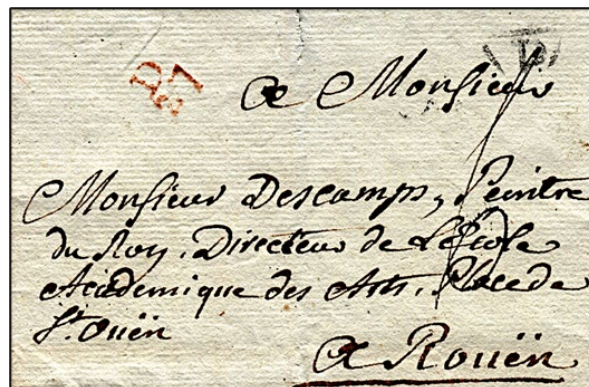 a Monsieur
Monsieur Descamps, Peintre
du Roy. Directeur de L'Ecole
Academique des Arts. Place de
St. Ouën
a Rouën